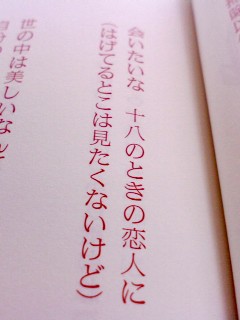 会いたいな 十八のときの恋人に
(はげてるとこは見たくないけど)
世の中は美しいなんて